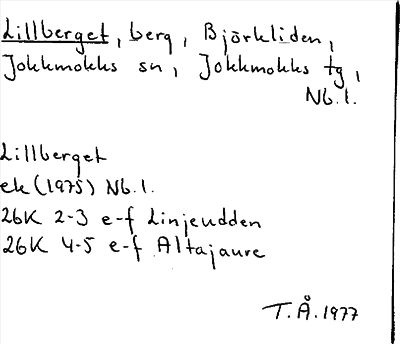 Lillberget, berg, Björkliden,
Jokkmokks sn, Jokkmokks tg,
Nb.l.
Lillberget
ek (1975) Nb.l.
26K 2-3 e-f Linjeudden
26K 4-5 e-f Altajaure
T.Å. 1977